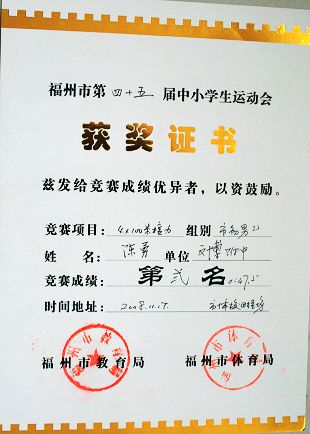 福州市第四十五届中小学生运动会
获奖证书
兹发给竞赛成绩优异者，以资鼓励。
竞赛项目：4×100米接力 组别 市初男
姓 名：陈勇 单位 附中
竞赛成绩：第贰名 0:47.5
时间地址：2008.11.17.
福州市教育局 福州市体育局